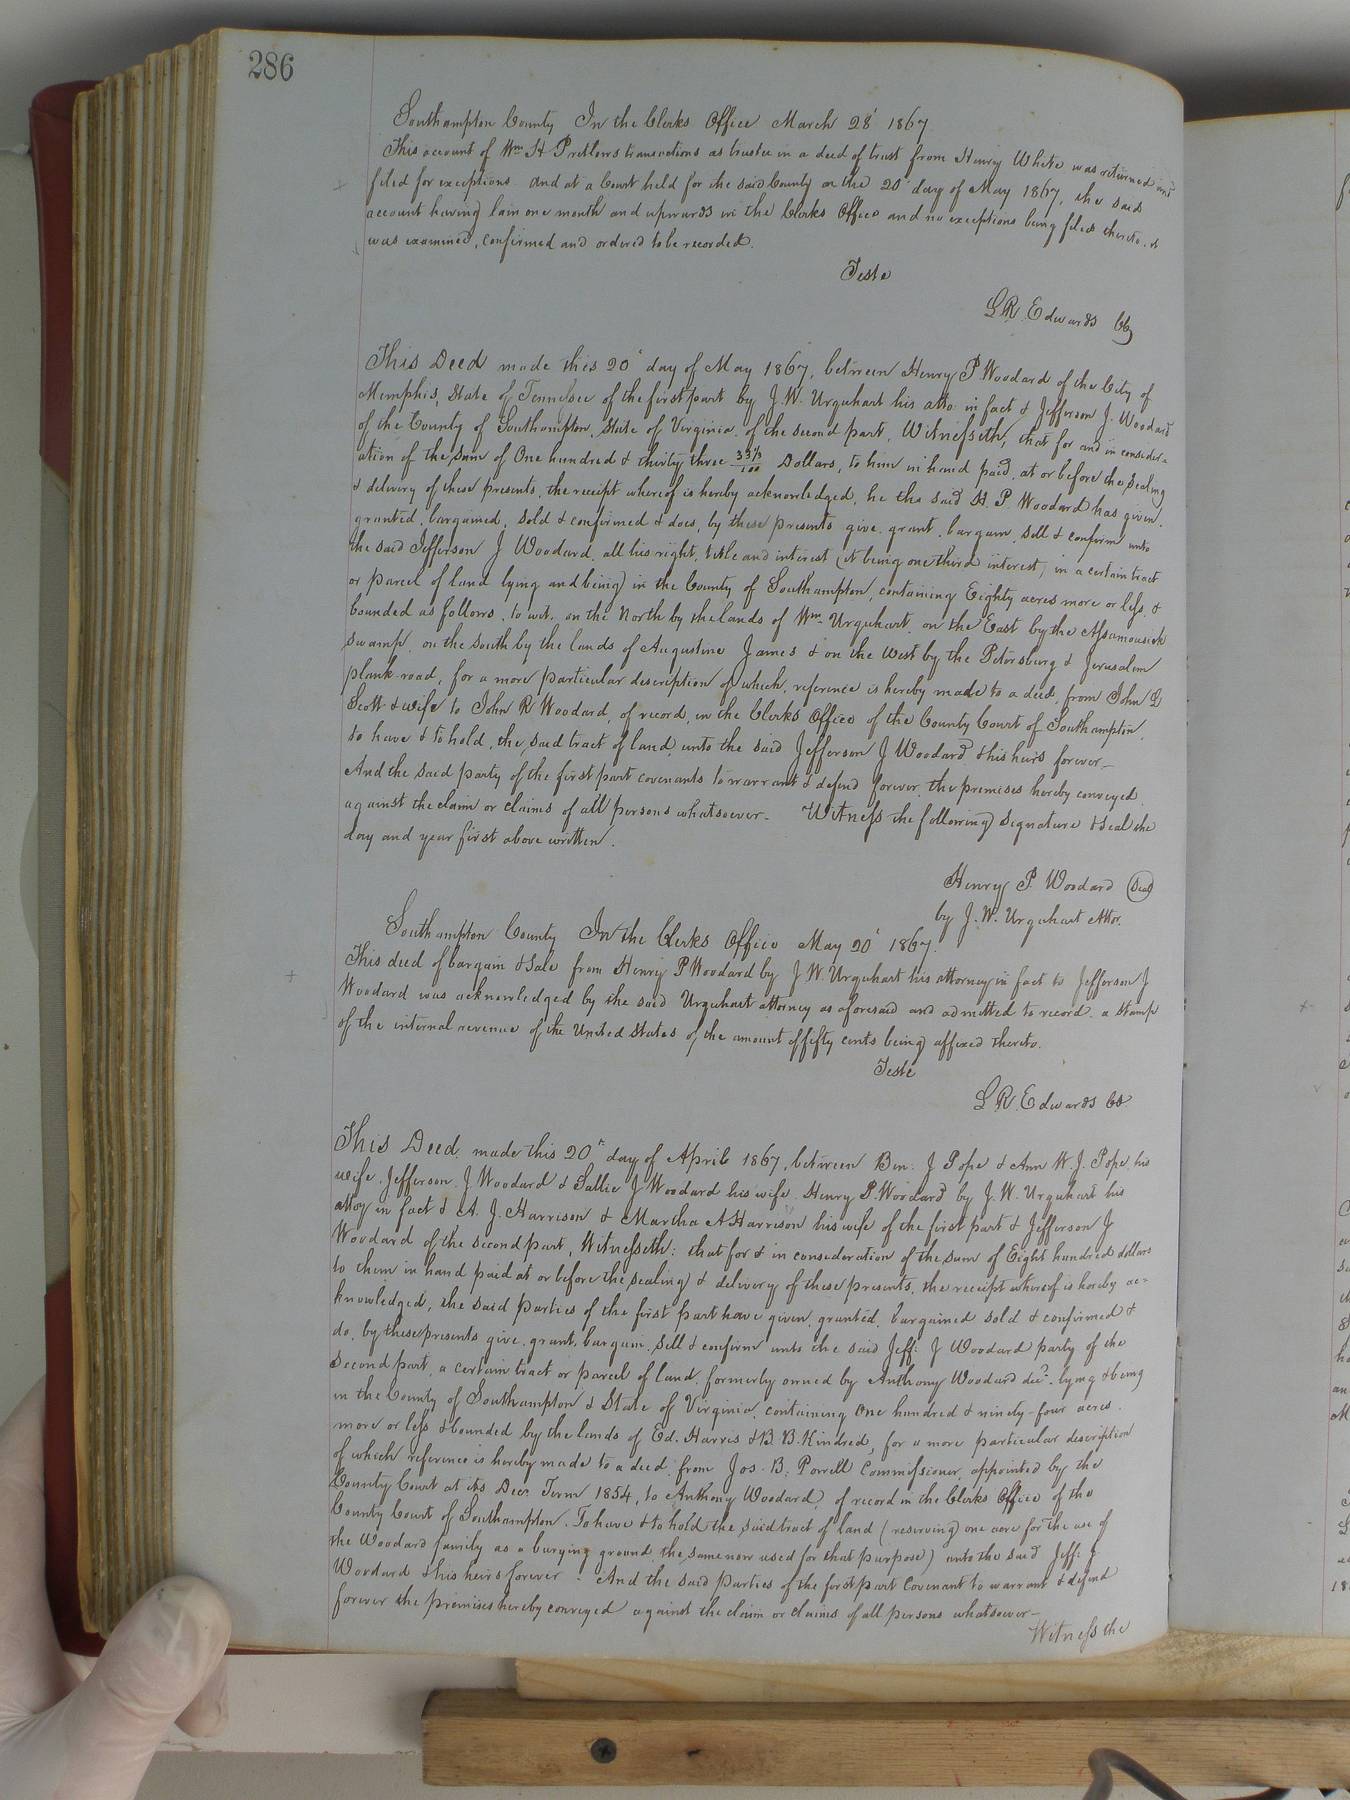 286
Southampton County In the Clerks Office March 28' 1867
This account of Wm H Pretlows transactions as trustee in a deed of trust from Henry White was returned and
filed for exceptions and at a Court held for the said County on the 20' day of May 1867, the said
account having lain one month and upwards in the Clerks Office and no exceptions being filed thereto, it
was examined, confirmed and ordered to be recorded.
Teste
L R. Edwards CC
This Deed made this 20' day of May 1867, between Henry P Woodard of the City of
Memphis, State of Tennessee of the first part by J. W. Urquhart his atto. in fact & Jefferson J. Woodard
of the County of Southampton, State of Virginia. of the second part, Witnesseth, that for and in consider-
ation of the sum of One hundred & thirty three 33⅓/100 Dollars, to him in hand paid, at or before the sealing
& delivery of these presents, the receipt whereof is hereby acknowledged, he the said H. P. Woodard has given,
granted, bargained, sold & confirmed & does, by these presents give, grant, bargain, sell & confirm unto
the said Jefferson J Woodard, all his right, title and interest (it being one third interest) in a certain tract
or parcel of land lying and being in the County of Southampton, containing Eighty acres more or less &
bounded as follows, to wit. on the North by the lands of Wm. Urquhart, on the East by the Assamousick
swamp, on the South by the lands of Augustine James & on the West by the Petersburg & Jerusalem
plank-road, for a more particular description of which, reference is hereby made to a deed, from John D
Scott & wife to John R Woodard, of record, in the Clerks Office of the County Court of Southampton,
to have & to hold, the said tract of land, unto the said Jefferson J Woodard & his heirs forever—
And the said party of the first part covenants to warrant & defend forever, the premises hereby conveyed
against the claim or claims of all persons whatsoever. Witness the following signature & seal the
day and year first above written.
Henry P. Woodard (Seal)
by J. W. Urquhart Attor.
Southampton County In the Clerks Office May 20' 1867.
This deed of bargain & sale from Henry P Woodard by J W. Urquhart his attorney in fact to Jefferson J
Woodard was acknowledged by the said Urquhart attorney as aforesaid and admitted to record. a stamp
of the internal revenue of the United States of the amount of fifty cents being affixed thereto.
Teste
L R. Edwards CC
This Deed, made this 20th day of April 1867, between Ben: J Pope & Ann W. J. Pope, his
wife, Jefferson J Woodard & Sallie J Woodard his wife, Henry P. Woodard by J. W. Urquhart his
attoy in fact & A. J. Harrison & Martha A Harrison his wife of the first part & Jefferson J
Woodard of the second part, Witnesseth: that for & in consideration of the sum of Eight hundred dollars
to them in hand paid at or before the sealing & delivery of these presents, the receipt whereof is hereby ac-
knowledged, the said parties of the first part have given, granted, bargained sold & confirmed &
do, by these presents give, grant, bargain, sell & confirm unto the said Jeff: J Woodard party of the
second part, a certain tract or parcel of land, formerly owned by Anthony Woodard decd. lying & being
in the County of Southampton & State of Virginia, containing One hundred & ninety-four acres
more or less & bounded by the lands of Ed. Harris & B. B. Kindred, for a more particular description
of which reference is hereby made to a deed, from Jos. B: Porrell Commissioner, appointed by the
County Court at its Decr. Term 1854, to Anthony Woodard, of record in the Clerks Office of the
County Court of Southampton. To have & to hold the said tract of land (reserving one acre for the use of
the Woodard family as a burying ground, the same now used for that purpose) unto the said Jeff: J
Woodard & his heirs forever - And the said parties of the first part Covenant to warrant & defend
forever the premises hereby conveyed against the claim or claims of all persons whatsoever—
Witness the